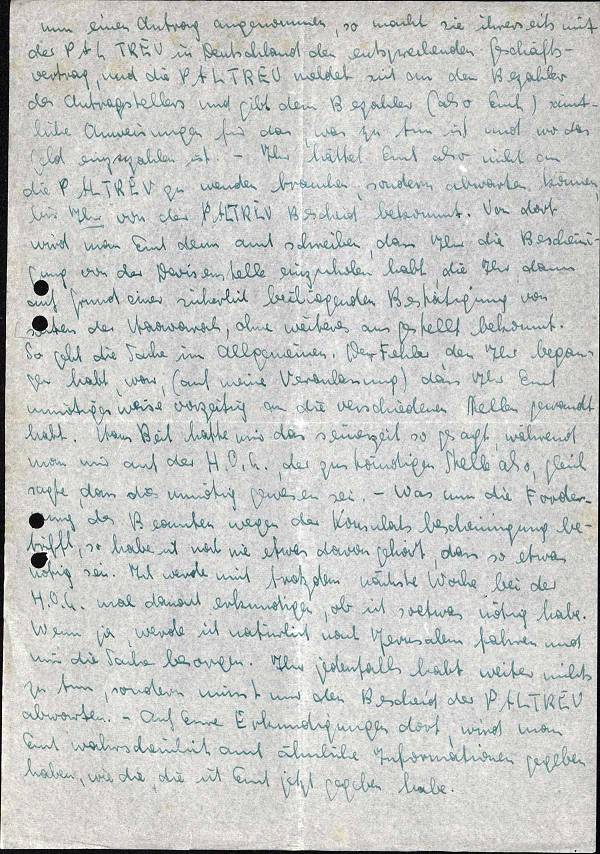 nun einen Antrag angenommen, so macht sie ihrerseits mit
der PALTRËU in Deutschland den entsprechenden Geschäfts-
vertrag, und die PALTRËU meldet sich an den Bezahler
des Antragstellers und gibt dem Bezahler (also Euch) sämt-
liche Anweisungen für das, was zu tun ist und wo das
Geld einzuzahlen ist. - Ihr hättet Euch also nicht an
die PALTRËU zu wenden brauchen, sondern abwarten können,
bis Ihr von der PALTRËU Bescheid bekommt. Von dort
wird man Euch dann auch schreiben, dass Ihr die Beschein-
gung von der Devisenstelle einzuholen habt, die Ihr dann
auf Grund einer sicherlich beiliegenden Bestätigung von
seiten der Haavarah, ohne weiteres ausgestellt bekommt.
So geht die Sache im Allgemeinen. Der Fehler den Ihr began-
gen habt, war, (auf meine Veranlassung) dass Ihr Euch
unnötigerweise vorzeitig an die verschiedenen Stellen gewandt
habt. Hans Beit hatte mir das seinerzeit so gesagt, während
man mir auf der H.O.G., der zuständigen Stelle also, gleich
sagte, dass das unnötig gewesen sei. - Was nun die Forder-
ung des Beamten wegen der Konsulatsbescheinigung be-
trifft, so habe ich noch nie etwas davon gehört, dass so etwas
nötig sei. Ich werde mich trotzdem nächste Woche bei der
H.O.G. mal danach erkundigen, ob ich soetwas nötig habe.
Wenn ja, werde ich natürlich nach Jerusalem fahren und
mir die Sache besorgen. Ihr jedenfalls habt weiter nichts
zu tun, sondern müsst nur den Bescheid der PALTRËU
abwarten. - Auf Eure Erkundigungen dort, wird man
Euch wahrscheinlich auch ähnliche Informationen gegeben
haben, wie die, die ich Euch jetzt gegeben habe.